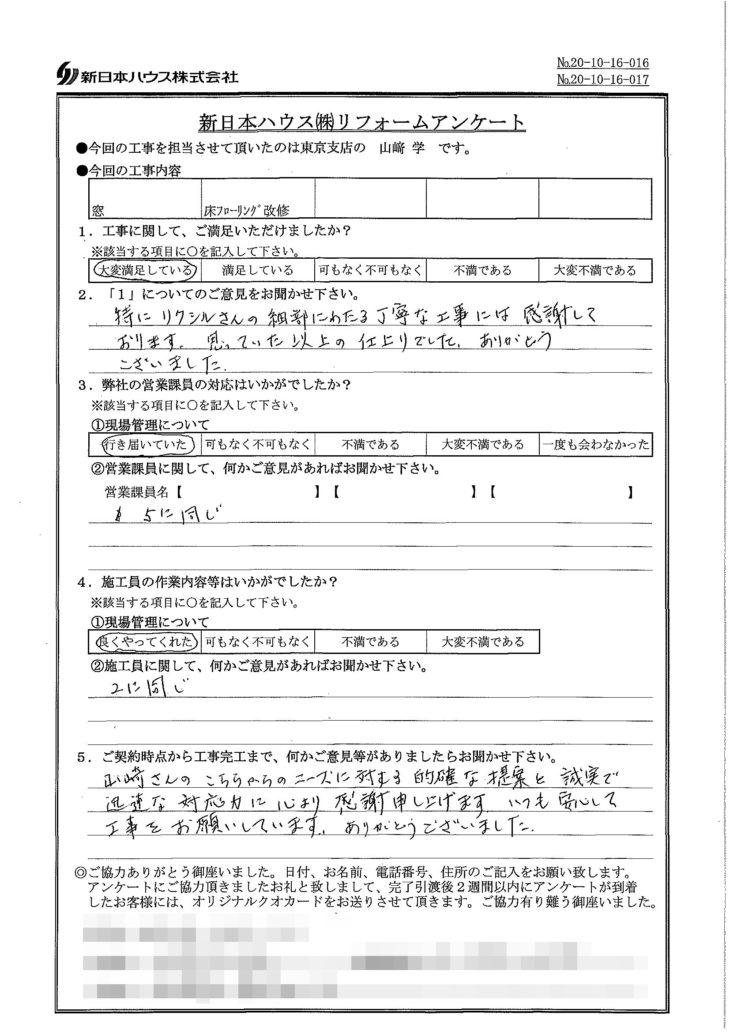 新日本ハウス株式会社
№20-10-16-016
№20-10-16-017
新日本ハウス㈱リフォームアンケート
●今回の工事を担当させて頂いたのは東京支店の 山﨑 学 です。
●今回の工事内容
窓 床ﾌﾛｰﾘﾝｸﾞ改修
1．工事に関して、ご満足いただけましたか？
※該当する項目に〇を記入して下さい。
大変満足している 満足している 可もなく不可もなく 不満である 大変不満である
2．「1」についてのご意見をお聞かせ下さい。
特にリクシルさんの細部にわたる丁寧な工事には感謝して
おります。思っていた以上の仕上りでした。ありがとう
ございました。
3．弊社の営業課員の対応はいかがでしたか？
※該当する項目に〇を記入して下さい。
①現場管理について
行き届いていた 可もなく不可もなく 不満である 大変不満である 一度も会わなかった
②営業課員に関して、何かご意見があればお聞かせ下さい。
営業課員名【 】【 】【 】
5に同じ
4．施工員の作業内容等はいかがでしたか？
※該当する項目に〇を記入して下さい。
①現場管理について
良くやってくれた 可もなく不可もなく 不満である 大変不満である
②施工員に関して、何かご意見があればお聞かせ下さい。
2に同じ
5．ご契約時点から工事完工まで、何かご意見等がありましたらお聞かせ下さい。
山崎さんのこちらからのニーズに対する的確な提案と誠実で
迅速な対応力に心より感謝申し上げます。いつも安心して
工事をお願いしています。ありがとうございました。
◎ご協力ありがとう御座いました。日付、お名前、電話番号、住所のご記入をお願い致します。
アンケートにご協力頂きましたお礼と致しまして、完了引渡後２週間以内にアンケートが到着
したお客様には、オリジナルクオカードをお送りさせて頂きます。ご協力有り難う御座いました。